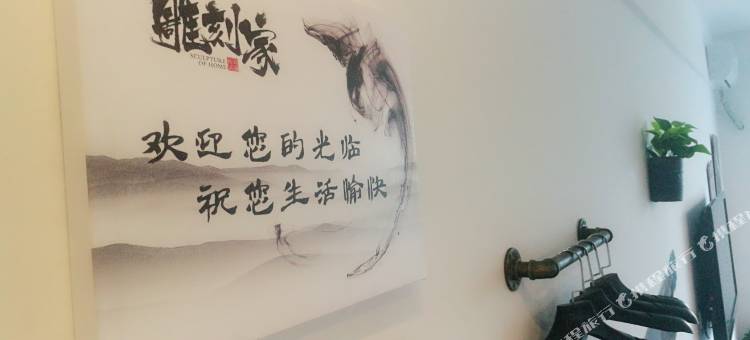 雕刻家
SCULPTURE
OF HOME
欢迎您的光临
祝您生活愉快
携程旅行
携程旅行